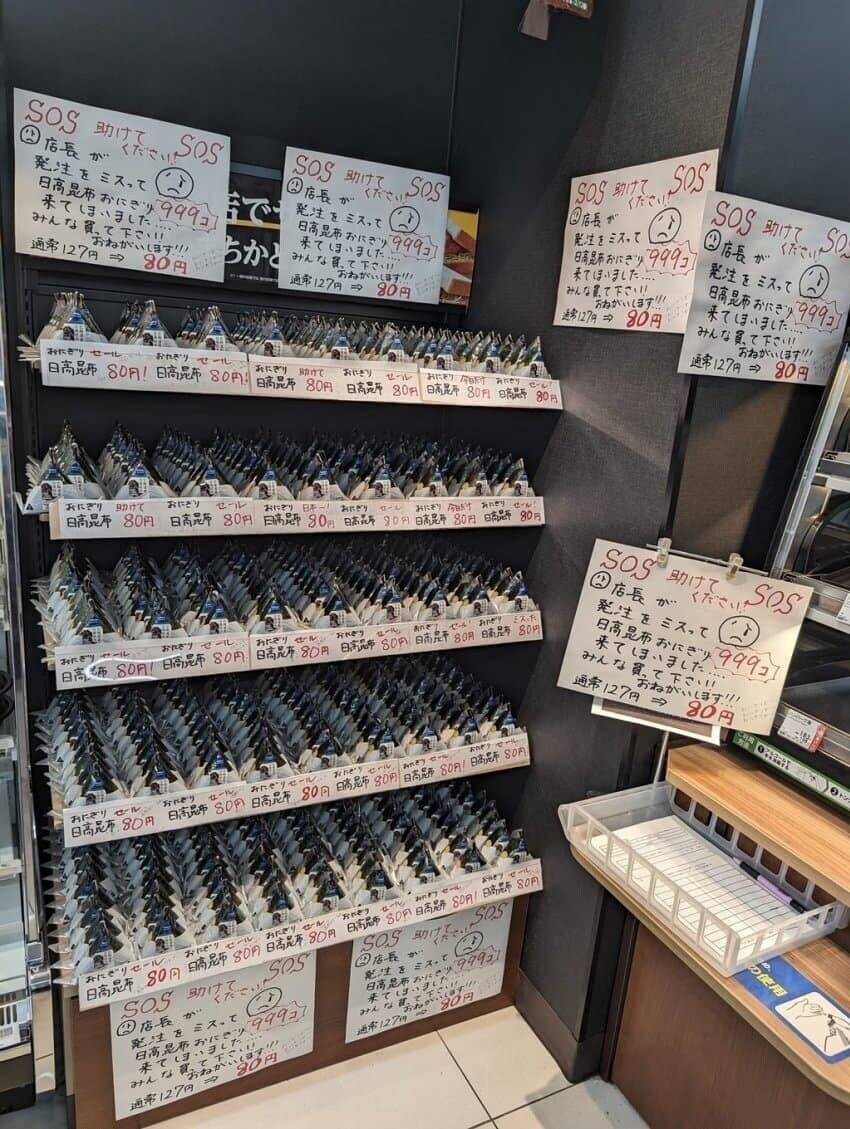 SOS 助けて ください! SOS
店長が
発注をミスって
日高昆布おにぎり 999コ
来てしまいました....
みんな買って下さい!!
おねがいします!!!
通常127円 ⇒ 80円
SOS 助けて ください! SOS
店長が
発注をミスって
日高昆布おにぎり 999コ
来てしまいました....
みんな買って下さい!!
おねがいします!!!
通常127円 ⇒ 80円
SOS 助けて ください! SOS
店長が
発注をミスって
日高昆布おにぎり 999コ
来てしまいました....
みんな買って下さい!!
おねがいします!!!
通常127円 ⇒ 80円
SOS 助けて ください! SOS
店長が
発注をミスって
日高昆布おにぎり 999コ
来てしまいました....
みんな買って下さい!!
おねがいします!!!
通常127円 ⇒ 80円
おにぎり セール おにぎり セール おにぎり 助けて おにぎり セール おにぎり 今日だけ おにぎり セール
日高昆布 80円! 日高昆布 80円! 日高昆布 80円 日高昆布 80円 日高昆布 80円 日高昆布 80円
おにぎり 助けて おにぎり セール おにぎり 日本一! おにぎり セール おにぎり 今日だけ おにぎり セール
日高昆布 80円 日高昆布 80円 日高昆布 80円 日高昆布 80円 日高昆布 80円 日高昆布 80円
おにぎり セール おにぎり セール おにぎり セール おにぎり セール おにぎり セール おにぎり ミスった
日高昆布 80円! 日高昆布 80円 日高昆布 80円 日高昆布 80円 日高昆布 80円 日高昆布 80円
おにぎり セール おにぎり セール おにぎり セール おにぎり セール おにぎり セール おにぎり セール
日高昆布 80円 日高昆布 80円 日高昆布 80円 日高昆布 80円 日高昆布 80円! 日高昆布 80円
おにぎり セール おにぎり セール おにぎり セール おにぎり セール おにぎり セール おにぎり セール
日高昆布 80円 日高昆布 80円 日高昆布 80円 日高昆布 80円 日高昆布 80円 日高昆布 80円
SOS 助けて ください! SOS
店長が
発注をミスって
日高昆布おにぎり 999コ
来てしまいました....
みんな買って下さい!!
おねがいします!!!
通常127円 ⇒ 80円
SOS 助けて ください! SOS
店長が
発注をミスって
日高昆布おにぎり 999コ
来てしまいました....
みんな買って下さい!!
おねがいします!!!
通常127円 ⇒ 80円
SOS 助けて ください! SOS
店長が
発注をミスって
日高昆布おにぎり 999コ
来てしまいました....
みんな買って下さい!!
おねがいします!!!
通常127円 ⇒ 80円
の使用